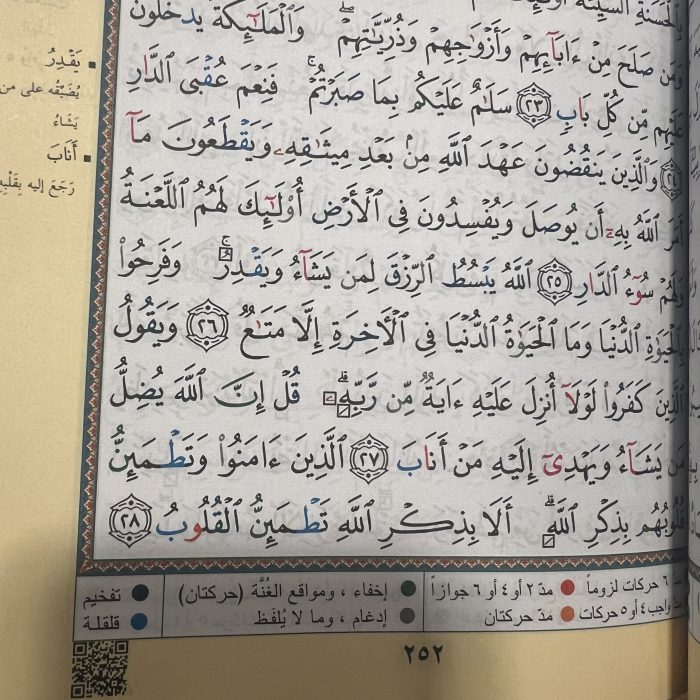 بِٱلۡحَسَنَةِ ٱلسَّيِّئَةَ
وَمَن صَلَحَ مِنۡ ءَابَآئِهِمۡ وَأَزۡوَٰجِهِمۡ وَذُرِّيَّٰتِهِمۡۖ وَٱلۡمَلَٰٓئِكَةُ يَدۡخُلُونَ
عَلَيۡهِم مِّن كُلِّ بَابٖ ٢٣ سَلَٰمٌ عَلَيۡكُم بِمَا صَبَرۡتُمۡۚ فَنِعۡمَ عُقۡبَى ٱلدَّارِ
٢٤ وَٱلَّذِينَ يَنقُضُونَ عَهۡدَ ٱللَّهِ مِنۢ بَعۡدِ مِيثَٰقِهِۦ وَيَقۡطَعُونَ مَآ
أَمَرَ ٱللَّهُ بِهِۦٓ أَن يُوصَلَ وَيُفۡسِدُونَ فِي ٱلۡأَرۡضِ أُوْلَٰٓئِكَ لَهُمُ ٱللَّعۡنَةُ
وَلَهُمۡ سُوٓءُ ٱلدَّارِ ٢٥ ٱللَّهُ يَبۡسُطُ ٱلرِّزۡقَ لِمَن يَشَآءُ وَيَقۡدِرُۚ وَفَرِحُواْ
بِٱلۡحَيَوٰةِ ٱلدُّنۡيَا وَمَا ٱلۡحَيَوٰةُ ٱلدُّنۡيَا فِي ٱلۡأٓخِرَةِ إِلَّا مَتَٰعٞ ٢٦ وَيَقُولُ
ٱلَّذِينَ كَفَرُواْ لَوۡلَآ أُنزِلَ عَلَيۡهِ ءَايَةٞ مِّن رَّبِّهِۦۚ قُلۡ إِنَّ ٱللَّهَ يُضِلُّ
مَن يَشَآءُ وَيَهۡدِيٓ إِلَيۡهِ مَنۡ أَنَابَ ٢٧ ٱلَّذِينَ ءَامَنُواْ وَتَطۡمَئِنُّ
قُلُوبُهُم بِذِكۡرِ ٱللَّهِۗ أَلَا بِذِكۡرِ ٱللَّهِ تَطۡمَئِنُّ ٱلۡقُلُوبُ ٢٨
يَقۡدِرُ
يُضَيِّقُه على من
يَشَاءُ
أَنَابَ
رَجَعَ إليه بِقَلْبِهِ
٦ حركات لزوماً مدّ ٢ أو ٤ أو ٦ جوازاً إخفاء ، ومواقع الغُنَّة (حركتان) تفخيم
واجب ٤ أو ٥ حركات مدّ حركتان إدغام ، وما لا يُلفَظ قلقلة
٢٥٢